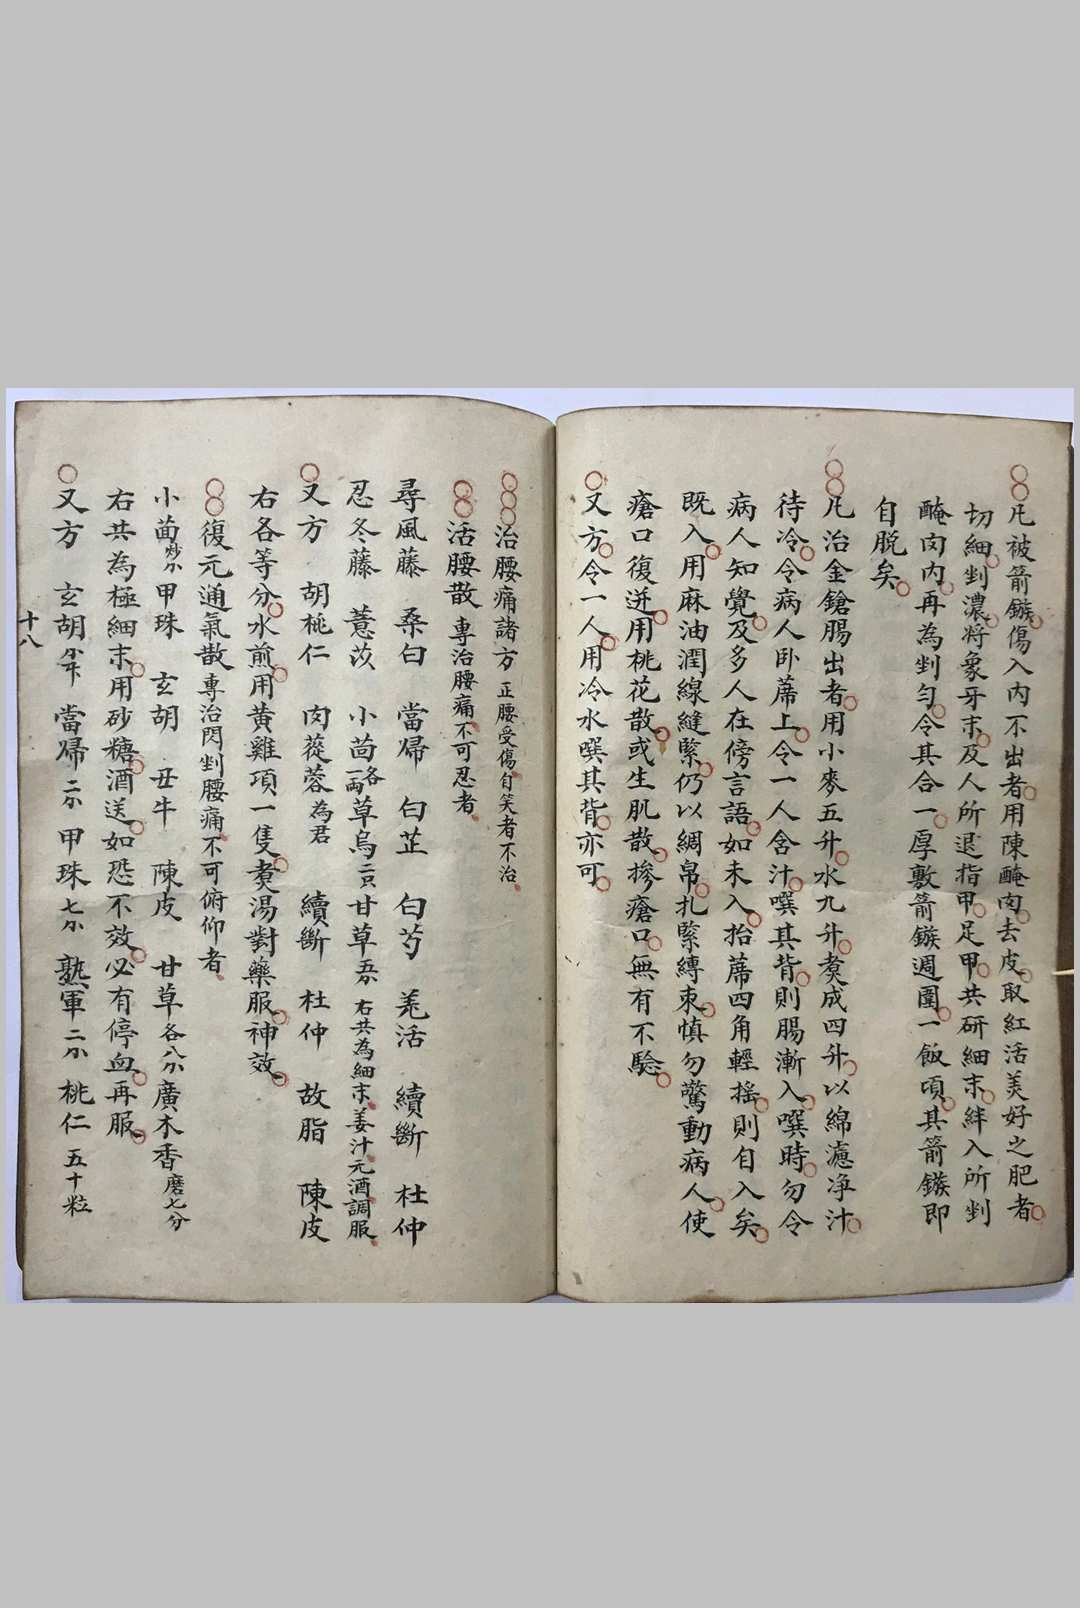 凡被箭鏃傷入內不出者用陳醃肉去皮取紅活美好之肥者
切細剉濃將象牙末及人所退指甲足甲共研細末絆入所剉
醃肉內再為剉勻令其合一厚敷箭鏃週圍一飯頃其箭鏃即
自脫矣
凡治金鎗腸出者用小麥五升水九升煑成四升以綿濾净汁
待冷令病人卧蓆上令一人含汁噀其背則腸漸入噀時勿令
病人知覺及多人在傍言語如未入抬蓆四角輕摇則自入矣
既入用麻油潤線縫緊仍以綢帛扎緊縛束慎勿驚動病人使
瘡口復迸用桃花散或生肌散摻瘡口無有不驗
又方令一人用冷水噀其背亦可
治腰痛諸方 正腰受傷自笑者不治
活腰散 專治腰痛不可忍者
尋風藤 桑白 當歸 白芷 白芍 羗活 續斷 杜仲
忍冬藤 薏苡 小茴各一两 草烏 甘草 右共為細末姜汁元酒調服
又方 胡桃仁 肉蓯蓉為君 續斷 杜仲 故脂 陳皮
右各等分水煎用黃雞項一隻煑湯對藥服神效
復元通氣散 專治閃剉腰痛不可俯仰者
小茴炒 甲珠 玄胡 丑牛 陳皮 甘草各八分 廣木香磨七分
右共為極細末用砂糖酒送如恐不效必有停血再服
又方 玄胡 當歸二分 甲珠七分 熟軍二分 桃仁五十粒
十八